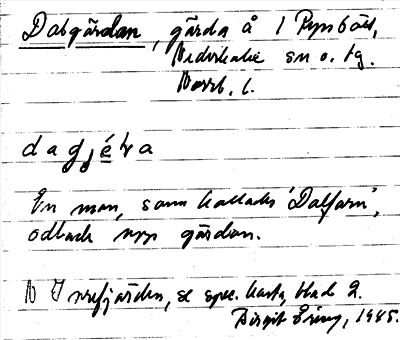 Dalgärdan, gärda å 1 Rynbäck,
Nederkalix sn o. tg.
Norrb. l.
dagjéḷa
En man, som kallades "Dalfarn",
odlade upp gärdan.
N Innefjärden, se spec. karta, blad 2.
Birgit Ering, 1985.